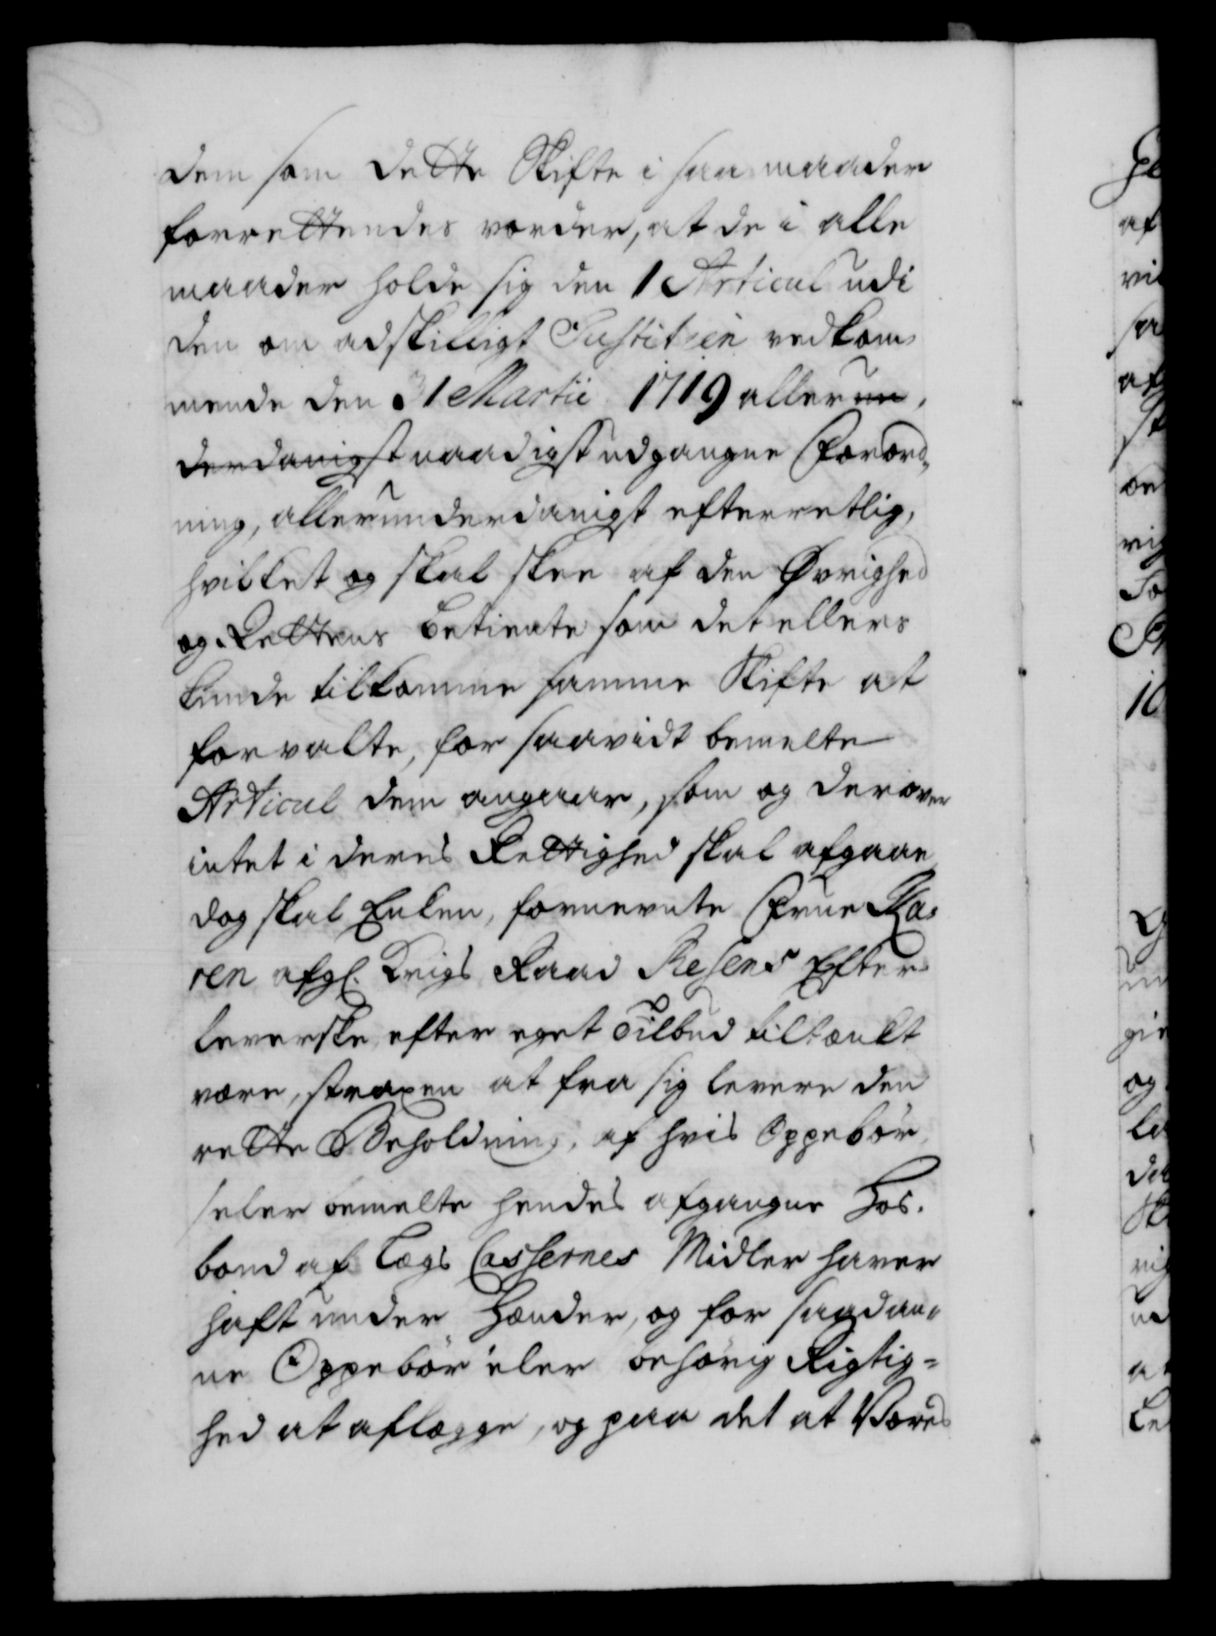 dem som dette Skifte i saa maader
forrettendes vorder, at de i alle
maader holde sig den 1 Articul udi
den om adskilligt Justitzien vedkom-
mende den 31 Martii 1719 allerun-
derdanigst naadigst udgangne Forord-
ning, allerunderdanigst efterretlig,
hvilket og skal skee af den Øvrighed
og Rettens betiente som det ellers
kunde tilkomme samme Skifte at
forvalte, for saavidt bemelte
Articul dem angaaer, som og derover
intet i deres Rettighed skal afgaae
dog skal Enken, fornevnte Frue Ka-
ren afgl. Krigs Raad Resens Efter-
leverske efter eget Tilbud tiltænkt
være, straxen at fra sig levere den
rette Beholdning, af hvis Oppebør-
seler bemelte hendes afgangne Hos-
bond af Lægs Cassernes Midler haver
haft under Hænder, og for saadan-
ne Oppebørseler behørig Rigtig=
hed at aflægge, og paa det at Vores